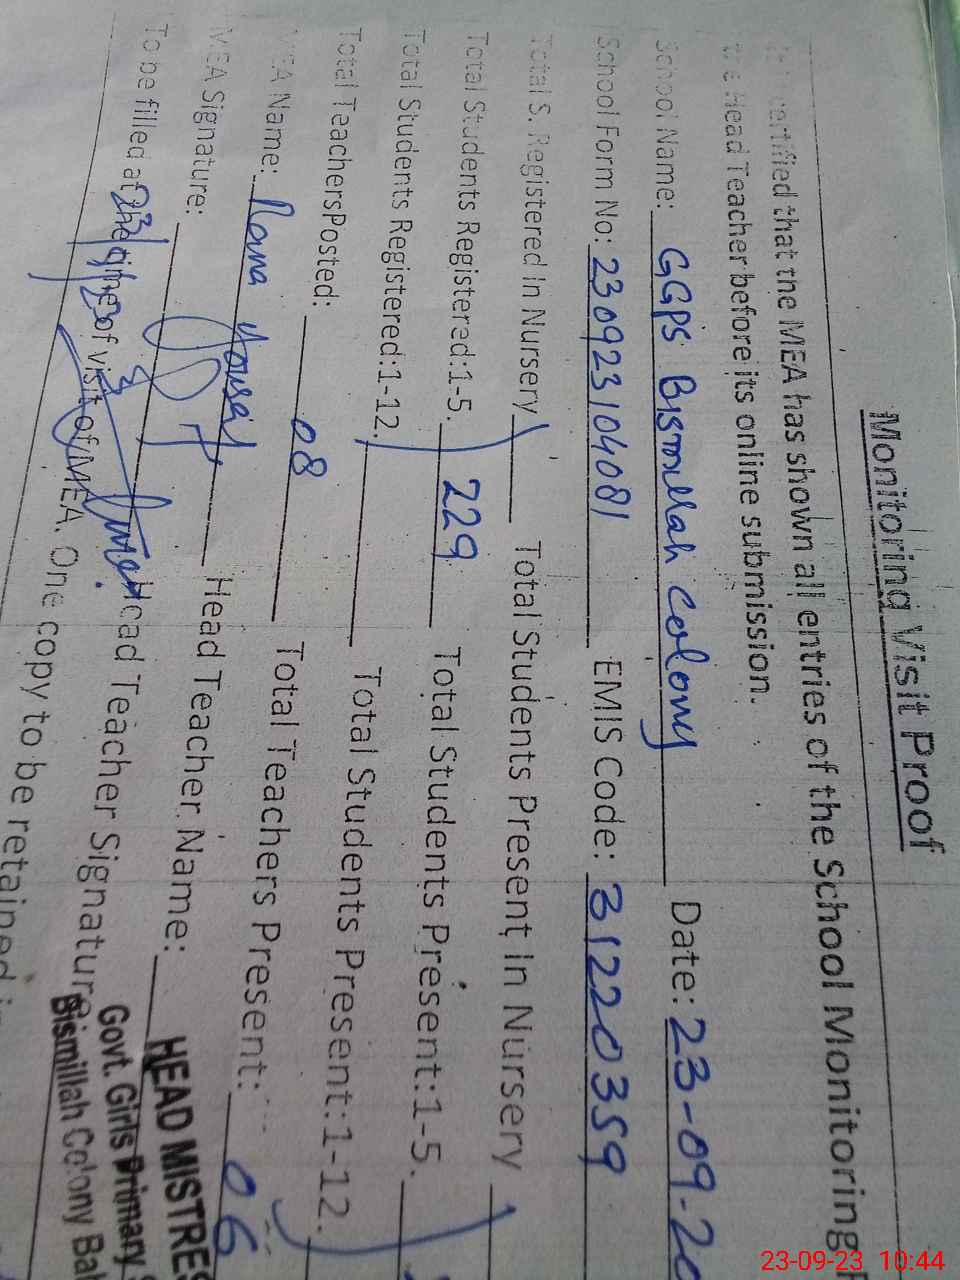 Monitoring Visit Proof
certified that the MEA has shown all entries of the School Monitoring
the Head Teacher before its online submission.
School Name: GGPS Bismillah Colony Date: 23-09-20
School Form No: 230923104081 EMIS Code: 31220359
Total S. Registered In Nursery Total Students Present in Nursery
Total Students Registered:1-5. 229 Total Students Present:1-5.
Total Students Registered:1-12. Total Students Present:1-12.
Total TeachersPosted: 08 Total Teachers Present: 06
MEA Name: Rana Yousaf Head Teacher Name:
MEA Signature: Head Teacher Signature:
To be filled at the time of visit of MEA. One copy to be retained
HEAD MISTRES
Govt. Girls Primary
Bismillah Colony Bah
23-09-23 10:44